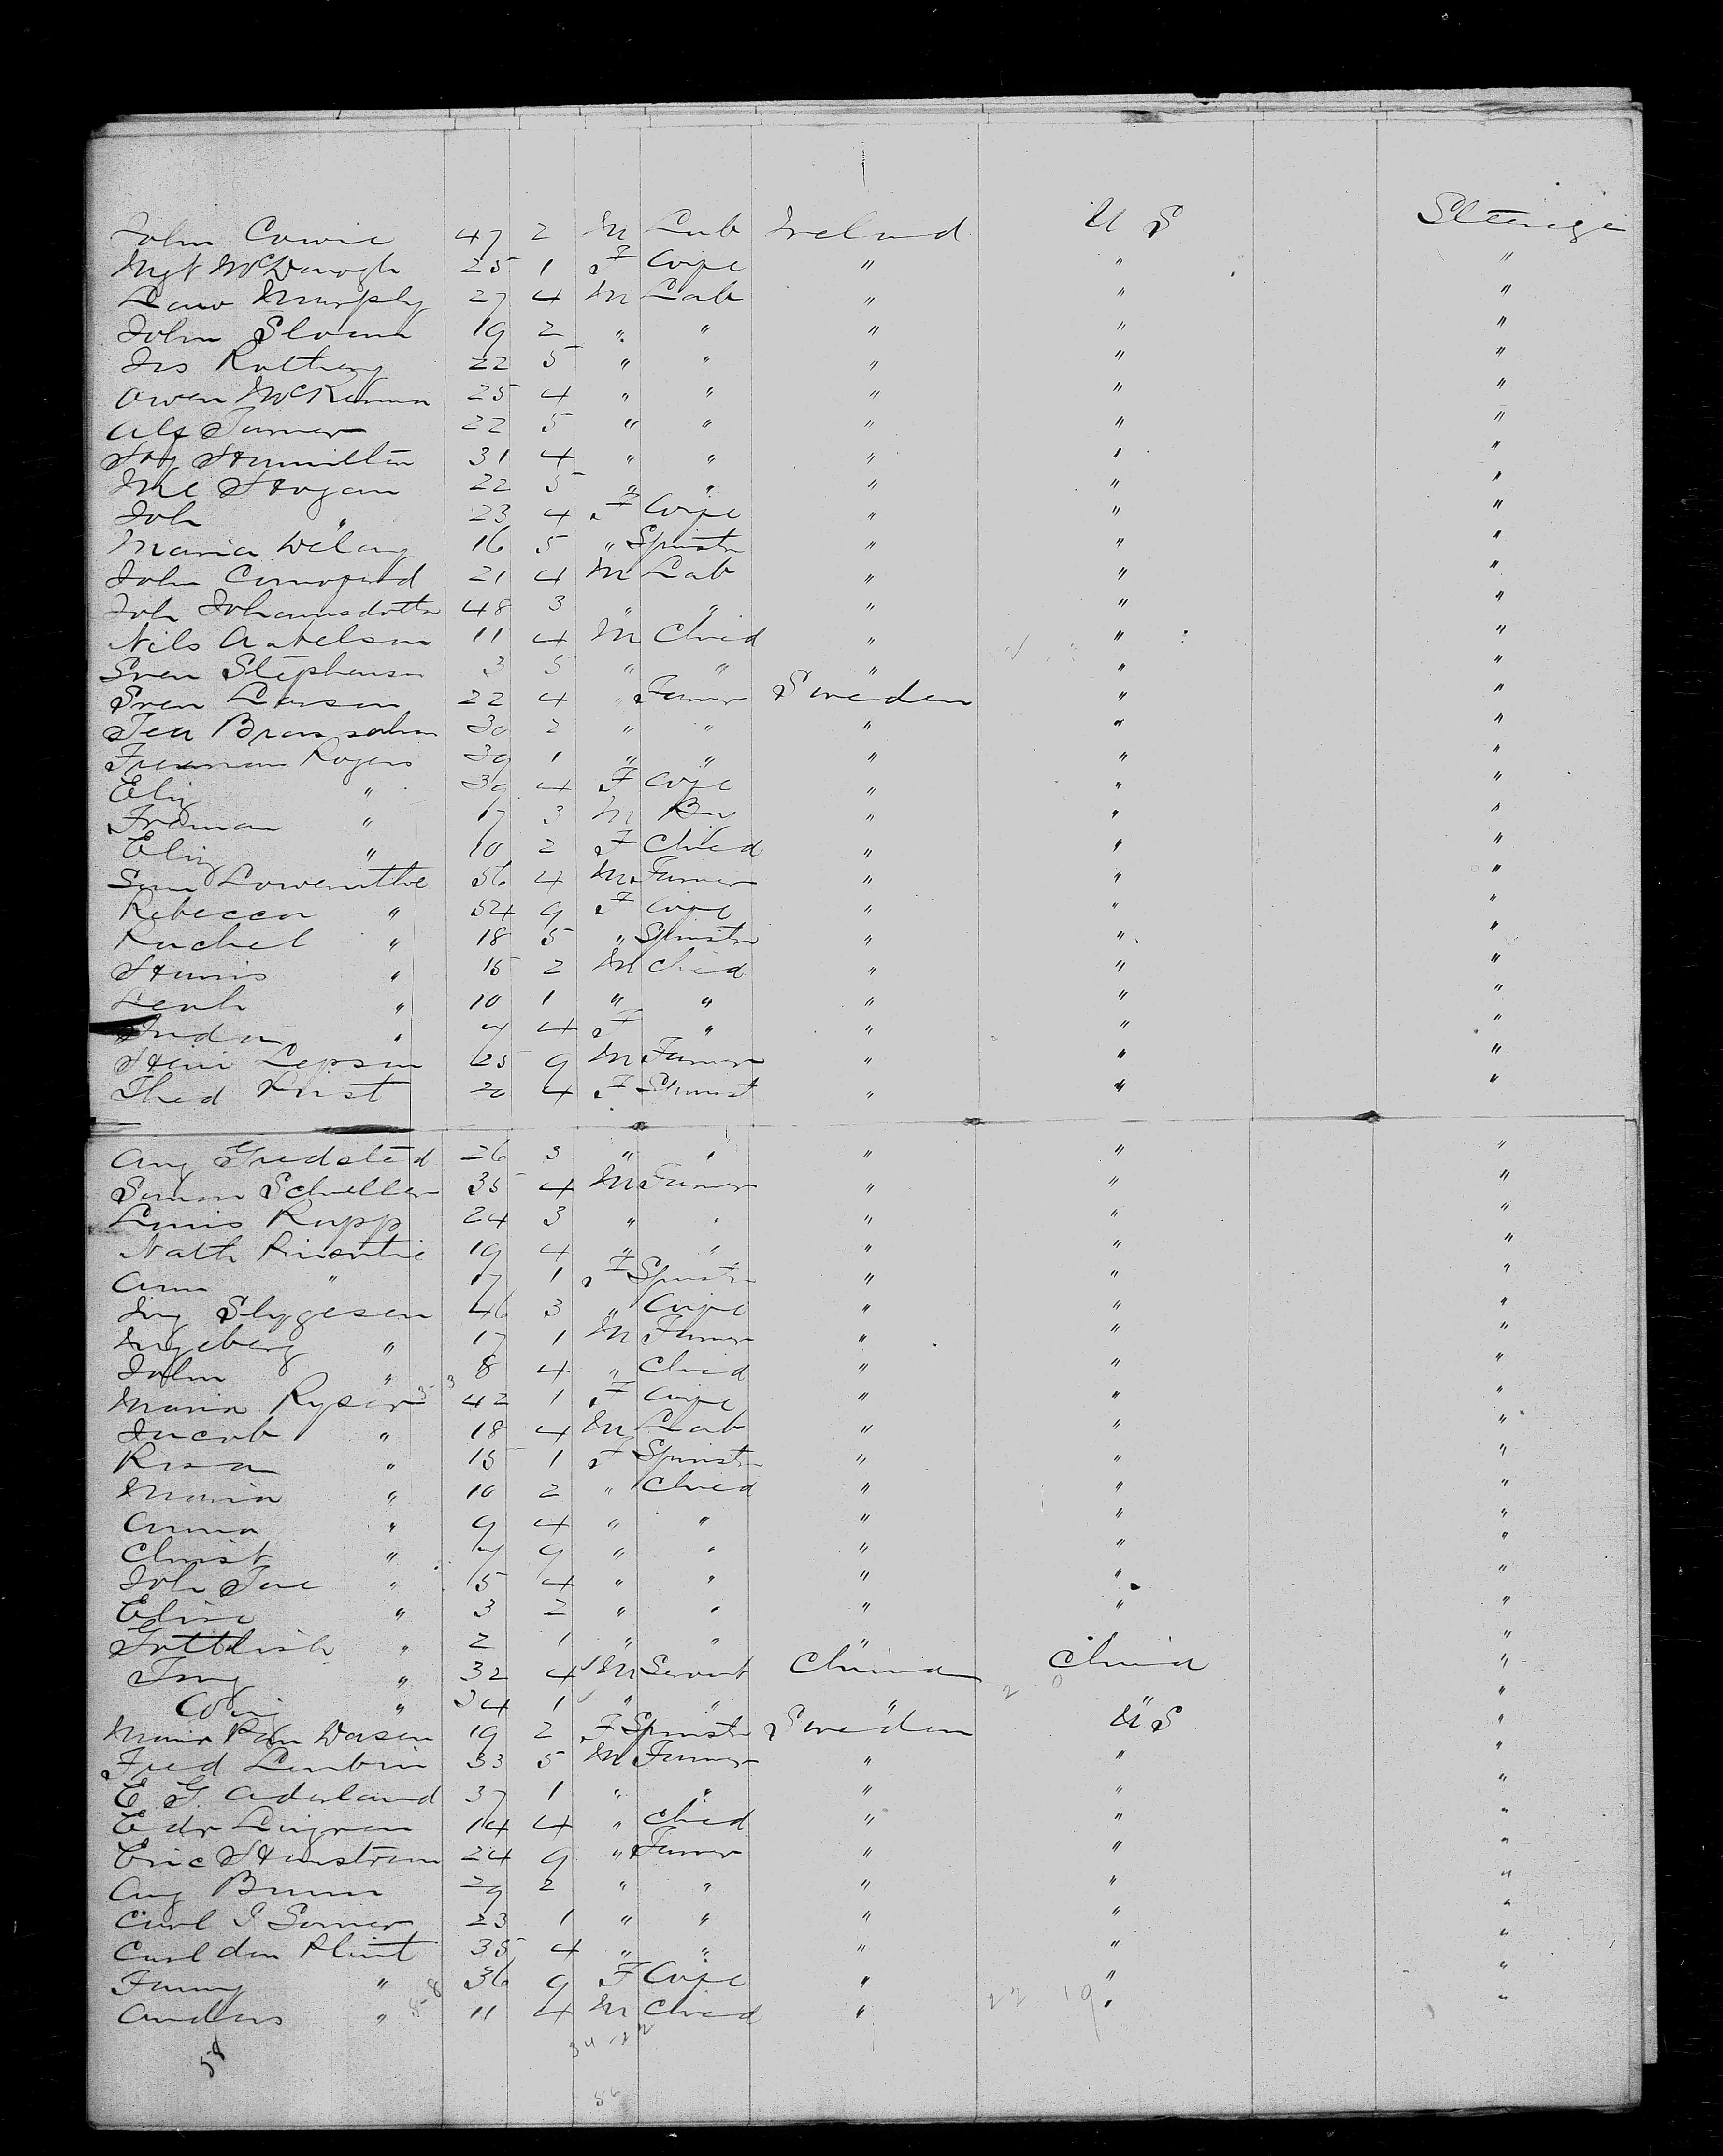 John Cowie 47 2 M Lab Ireland U S Steerage
Mgt McDonogh 25 1 F Wife " " "
Law Murphy 27 4 M Lab " " "
John Sloan 19 2 " " " " "
Jas Rattery 22 5 " " " " "
Owen McKenna 25 4 " " " " "
Alf Turner 22 5 " " " " "
Hy Hamilton 31 4 " " " " "
Ml Hogan 22 5 " " " " "
Joh " 23 4 F Wife " " "
Maria Delany 16 5 " Spinstr " " "
John 21 4 M Lab " " "
Joh Johannsdottr 48 3 " " " " "
Nils A Nelson 11 4 M Child " " "
Sven Stephenson 3 5 " " " " "
Sven Larson 22 4 " Farmer Sweden " "
30 2 " " " " "
Freeman Rogers 39 1 " " " " "
Eliz " 39 4 F Wife " " "
Froman " 17 3 M " " "
Eliz " 10 2 F Child " " "
Sam Lowenthe 56 4 M Farmer " " "
Rebecca " 54 9 F Wife " " "
Rachel " 18 5 " Spinstr " " "
Harris " 15 2 M Child " " "
Leah " 10 1 " " " " "
" 7 4 F " " " "
Lepson 25 9 M Farmer " " "
Thed 20 4 F Spinst " " "
Aug Gredsted 26 3 " " " " "
Simon Schueller 35 4 M Farmer " " "
Louis Rupp 24 3 " " " " "
Nath 19 4 " " " " "
Ann " 17 1 F Spinstr " " "
Ing Slygesen 46 3 " Wife " " "
Ingeberg " 17 1 M Farmer " " "
John " 8 4 " Child " " "
Maria Ryser 42 1 F Wife " " "
Jacob " 18 4 M Lab " " "
Rosa " 15 1 F Spinstr " " "
Maria " 10 2 " Child " " "
Anna " 9 4 " " " " "
Christ " 7 9 " " " " "
Joh Jac " 5 4 " " " " "
Elise " 3 2 " " " " "
Gottlieb " 2 1 " " " " "
" 32 4 M Servnt China China "
" 34 1 " " " " "
Maria Dasen 19 2 F Spinstr Sweden U S "
Fred 33 5 M Farmer " " "
E G Aderland 37 1 " " " " "
Edr Lingren 14 4 " Child " " "
Eric Hanstrom 24 9 " Farmer " " "
Aug 29 2 " " " " "
Carl 23 1 " " " " "
Carl 35 4 " " " " "
Fanny " 36 9 F Wife " " "
Anders " 11 4 M Child " " "
58